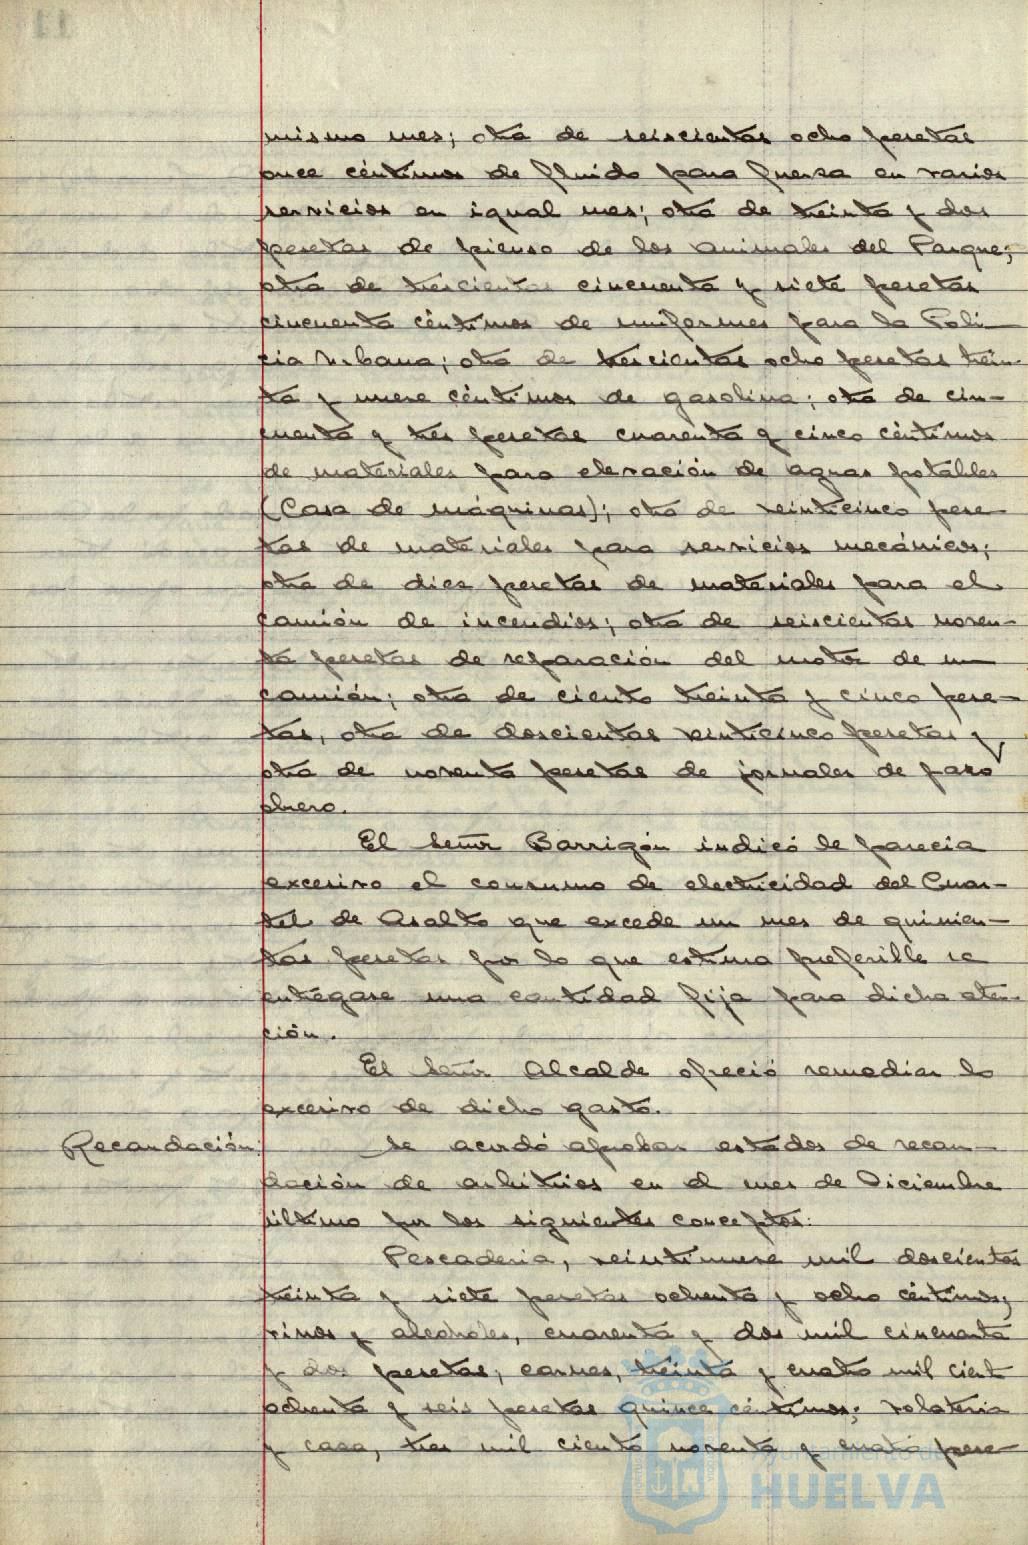 mismo mes; otra de seiscientas ocho pesetas
once céntimos de fluido para fuerza en varios
servicios en igual mes; otra de treinta y dos
pesetas de pienso de los animales del Parque;
otra de trescientas cincuenta y siete pesetas
cincuenta céntimos de uniformes para la Poli-
cia Urbana; otra de trescientas ocho pesetas trein-
ta y nueve céntimos de gasolina; otra de cin-
cuenta y tres pesetas cuarenta y cinco céntimos
de materiales para elevación de aguas potables
(Casa de máquinas); otra de veinticinco pese-
tas de materiales para servicios mecánicos;
otra de diez pesetas de materiales para el
camión de incendios; otra de seiscientas noven-
ta pesetas de reparación del motor de un
camión; otra de ciento treinta y cinco pese-
tas, otra de doscientas veinticinco pesetas y
otra de noventa pesetas de jornales de paro
obrero.
El Señor Barrigón indicó le parecia
excesivo el consumo de electricidad del Cuar-
tel de Asalto que excede un mes de quinien-
tas pesetas por lo que estima preferible se
entregase una cantidad fija para dicha aten-
ción.
El Señor Alcalde ofreció remediar lo
excesivo de dicho gasto.
Recaudación: Se acordó aprobar estados de recau-
dación de arbitrios en el mes de Diciembre
último por los siguientes conceptos:
Pescaderia, veintinueve mil doscientas
treinta y siete pesetas ochenta y ocho céntimos;
vinos y alcoholes, cuarenta y dos mil cincuenta
y dos pesetas; carnes, treinta y cuatro mil ciento
ochenta y seis pesetas quince céntimos; volateria
y caza, tres mil ciento noventa y cuatro pese-
Ayuntamiento de
HUELVA